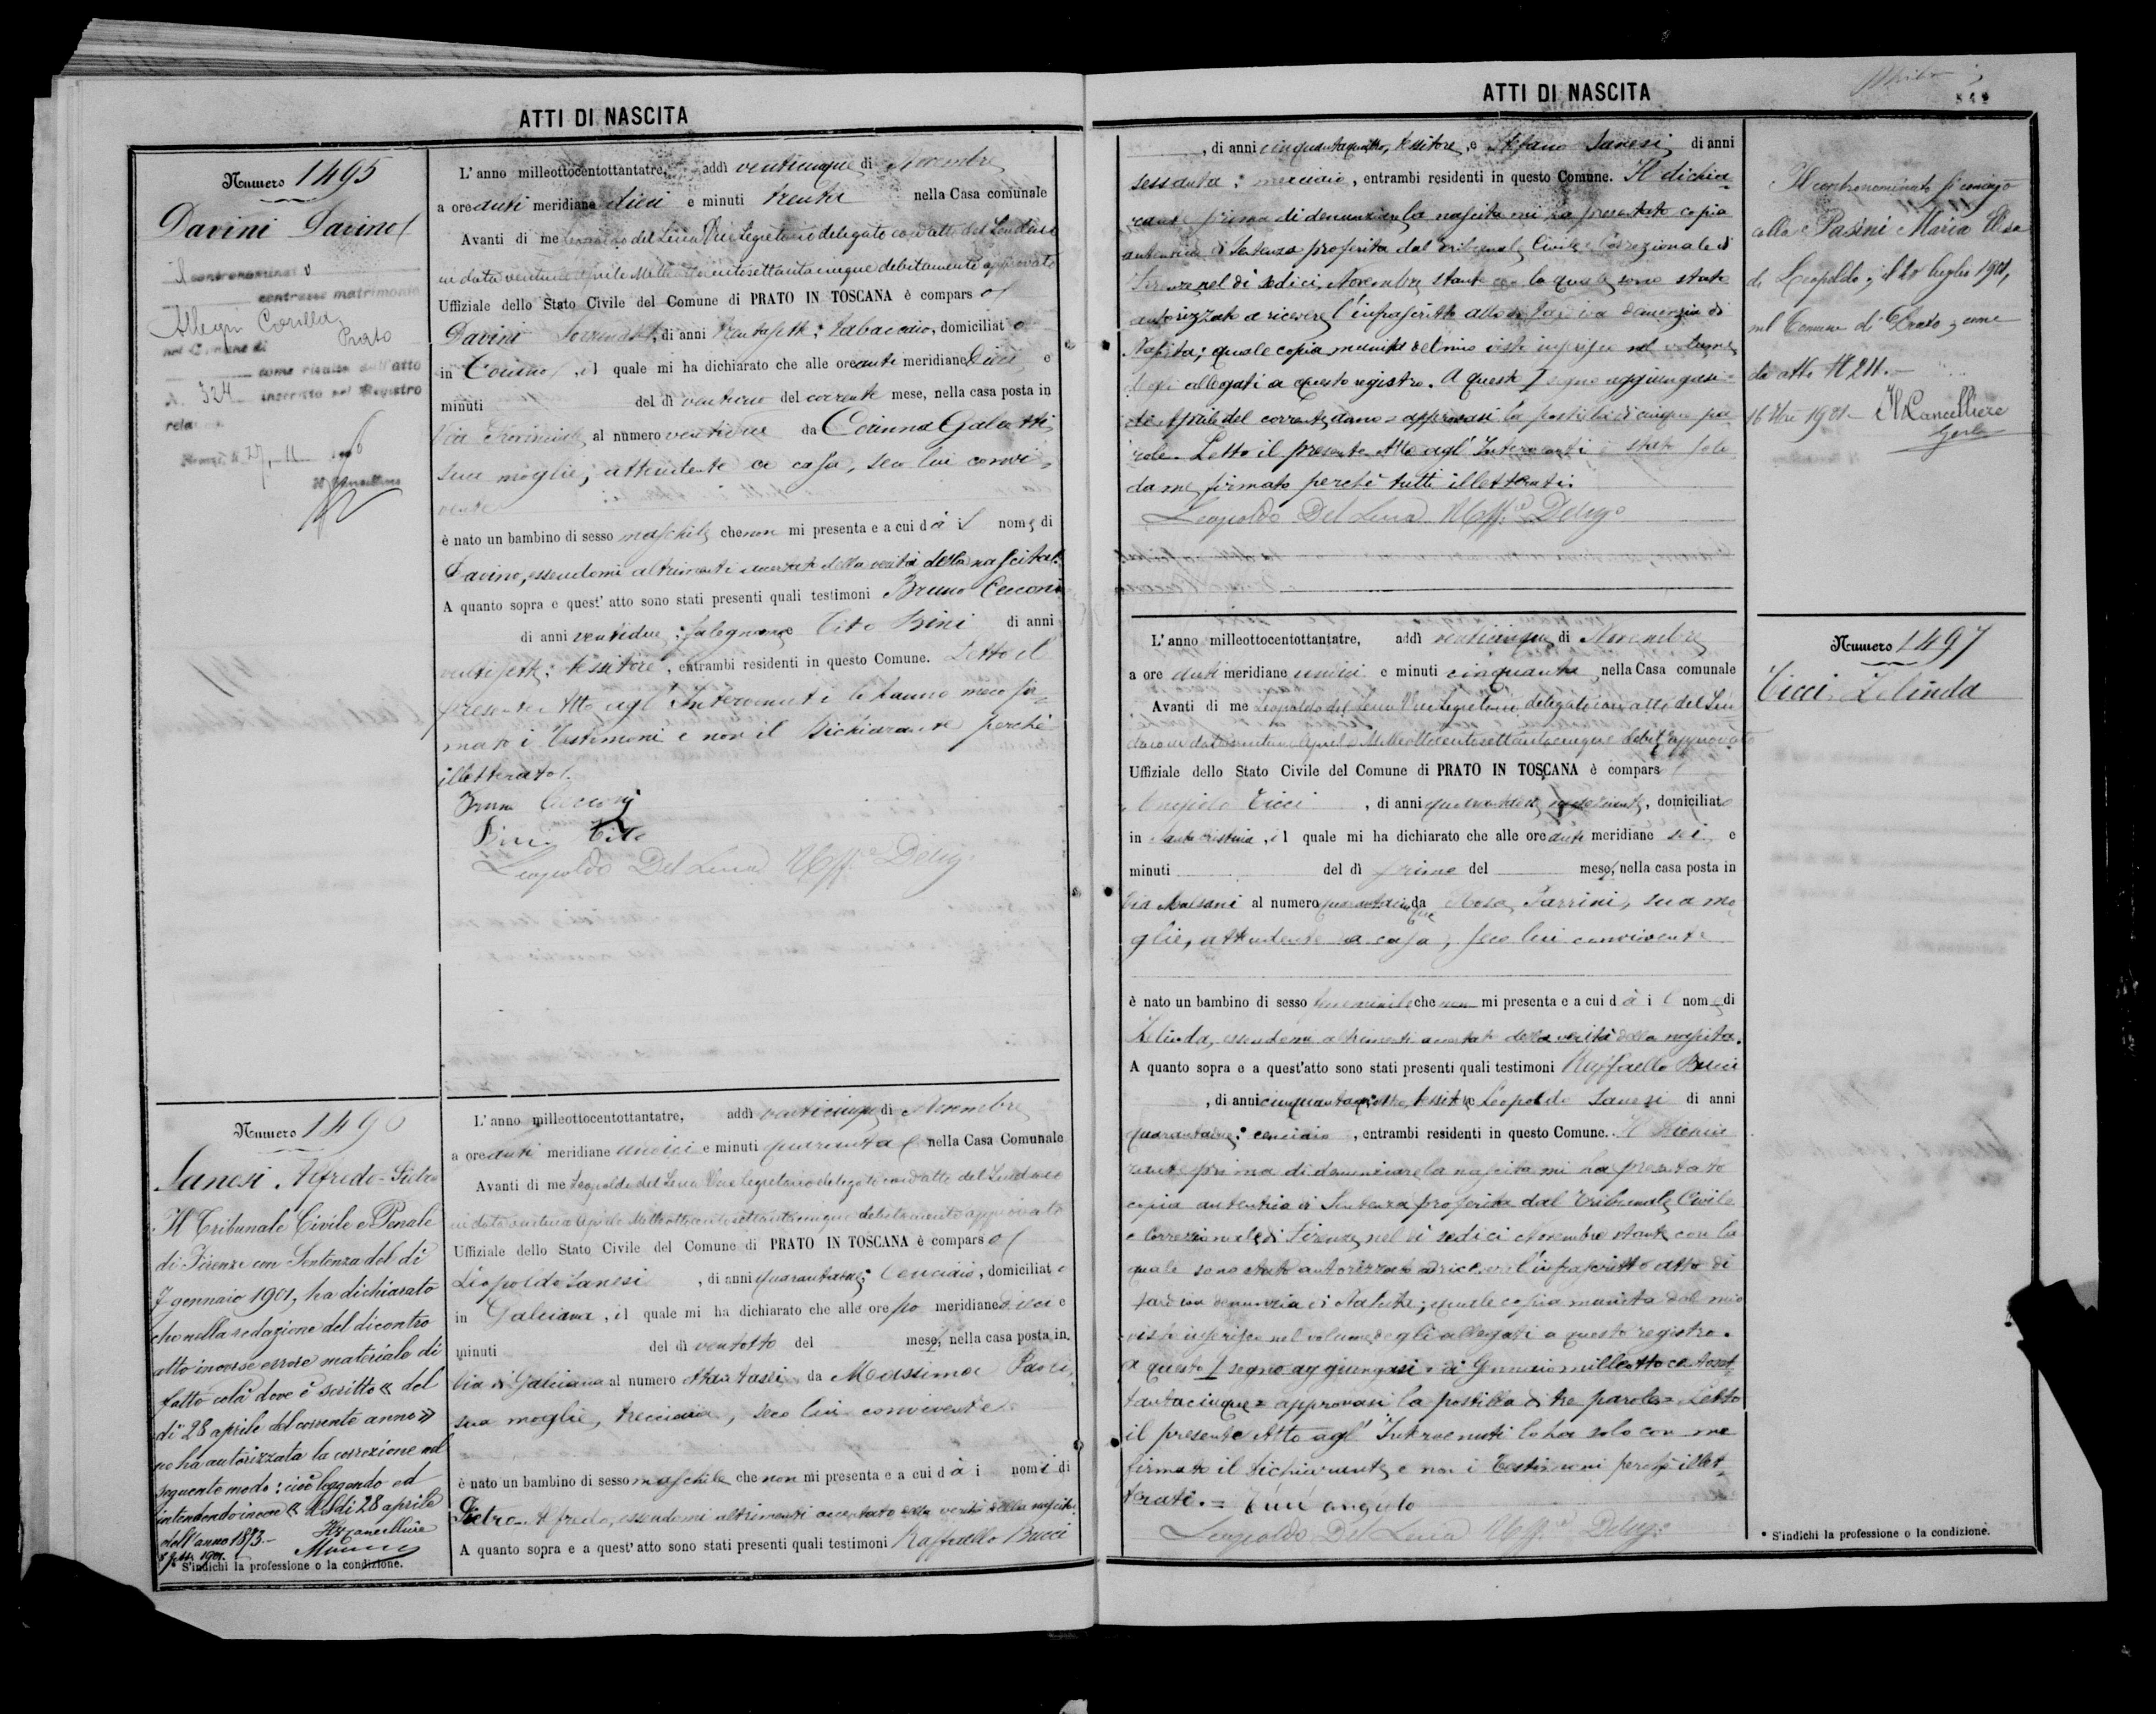 ATTI DI NASCITA
Numero 1495
Davini Davino
Il contronominato
contrasse matrimonio
Allegri Corilla
nel Comune di Prato
come risulta dall'atto
N. 324 inscritto nel Registro
rela
27, 11
Il Cancelliere
L'anno milleottocentottantatre, addì venticinque di Novembre
a ore anti meridiane dieci e minuti trenta nella Casa comunale
Avanti di me Leopoldo del Lena Vice Segretario delegato con atto del Sindaco
in data ventuno Aprile Milleottocentosettantacinque debitamente approvato
Uffiziale dello Stato Civile del Comune di PRATO IN TOSCANA è comparso
Davini di anni trentasette; tabaccaio, domiciliato
in , il quale mi ha dichiarato che alle ore anti meridiane dieci e
minuti del dì ventuno del corrente mese, nella casa posta in
Via Provinciale al numero ventinove da Corinna Galeotti,
sua moglie, attendente a casa, seco lui convi-
vente
è nato un bambino di sesso maschile che non mi presenta e a cui dà il nome di
Davino, essendomi altrimenti accertato della verità della nascita.
A quanto sopra e quest'atto sono stati presenti quali testimoni Bruno Cecconi
di anni ventidue; falegname e Tito Bini di anni
ventisette; tessitore, entrambi residenti in questo Comune. Letto il
presente Atto agl'Intervenuti lo hanno meco fir-
mato i Testimoni e non il Dichiarante perchè
illetterato.
Bruno Cecconi
Bini Tito
Leopoldo Del Lena Uff.e Deleg.o
Numero 1496
Sanesi Alfredo-Pietro
Il Tribunale Civile e Penale
di Firenze con Sentenza del dì
7 gennaio 1901, ha dichiarato
che nella redazione del dicontro
atto incorse errore materiale di
fatto colà dove è scritto « del
dì 28 aprile del corrente anno »
ne ha autorizzata la correzione nel
seguente modo: cioè leggendo ed
intendendo invece « del dì 28 aprile
dell'anno 1873.-
Il Cancelliere
1901.
S'indichi la professione o la condizione.
L'anno milleottocentottantatre, addì venticinque di Novembre
a ore anti meridiane undici e minuti quaranta nella Casa Comunale
Avanti di me Leopoldo del Lena Vice Segretario delegato con atto del Sindaco
in data ventuno Aprile Milleottocentosettantacinque debitamente approvato
Uffiziale dello Stato Civile del Comune di PRATO IN TOSCANA è comparso
Leopoldo Sanesi, di anni quarantadue; Cenciaio, domiciliato
in Galciana, il quale mi ha dichiarato che alle ore po meridiane dieci e
minuti del dì ventotto del mese, nella casa posta in
Via di Galciana al numero da Massima Paoli,
sua moglie, trecciaia, seco lui convivente
è nato un bambino di sesso maschile che non mi presenta e a cui dà i nomi di
Pietro-Alfredo, essendomi altrimenti accertato della verità della nascita
A quanto sopra e a quest'atto sono stati presenti quali testimoni Raffaello Bucci
ATTI DI NASCITA
, di anni cinquantaquattro, tessitore, e Stefano Sanesi di anni
sessanta; merciaio, entrambi residenti in questo Comune. Il dichia-
rante prima di denunziare la nascita mi ha presentato copia
autentica di Sentenza proferita dal Tribunale Civile e Correzionale di
Firenze nel dì sedici Novembre stante con la quale sono stato
autorizzato a ricevere l'infrascritto atto di tardiva denunzia di
Nascita; quale copia munita del mio visto inserisco nel volume
degli allegati a questo registro. A questo I segno aggiungasi =
di Aprile del corrente anno = approvasi la postilla di cinque pa-
role. Letto il presente Atto agl'Intervenuti è stato solo
da me firmato perchè tutti illetterati.
Leopoldo Del Lena Uff.e Deleg.o
Il contronominato si coniugò
colla Pasini Maria Elisa
di Leopoldo, il luglio 1901,
nel Comune di Prato, come
da atto N 211.-
16 1901- Il Cancelliere
L'anno milleottocentottantatre, addì venticinque di Novembre
a ore anti meridiane undici e minuti cinquanta nella Casa comunale
Avanti di me Leopoldo del Lena Vice Segretario delegato con atto del Sin-
daco in data ventuno Aprile Milleottocentosettantacinque debit.e approvato
Uffiziale dello Stato Civile del Comune di PRATO IN TOSCANA è comparso
Angiolo Ticci, di anni , domiciliato
in Santa Cristina, il quale mi ha dichiarato che alle ore anti meridiane sei e
minuti del dì primo del mese, nella casa posta in
Via al numero quarantacinque da Rosa Parrini, sua mo-
glie, attendente a casa, seco lui convivente
è nato un bambino di sesso femminile che non mi presenta e a cui dà il nome di
Zelinda, essendomi altrimenti accertato della verità della nascita.
A quanto sopra e a quest'atto sono stati presenti quali testimoni Raffaello Bucci
, di anni cinquantaquattro, tessitore Leopoldo Sanesi di anni
quarantadue; cenciaio, entrambi residenti in questo Comune. Il Dichia-
rante prima di denunziare la nascita mi ha presentato
copia autentica di Sentenza proferita dal Tribunale Civile
e Correzionale di Firenze nel dì sedici Novembre stante con la
quale sono stato autorizzato a ricevere l'infrascritto atto di
tardiva denunzia di Nascita; quale copia munita del mio
visto inserisco nel volume degli allegati a questo registro.
A questo I segno aggiungasi = di Gennaio milleottocentoset-
tantacinque = approvasi la postilla di tre parole = Letto
il presente Atto agl'Intervenuti lo ha solo con me
firmato il dichiarante e non i Testimoni perchè illet-
terati. = Ticci angiolo
Leopoldo Del Lena Uff.e Deleg.o
Numero 1497
Ticci Zelinda
* S'indichi la professione o la condizione.